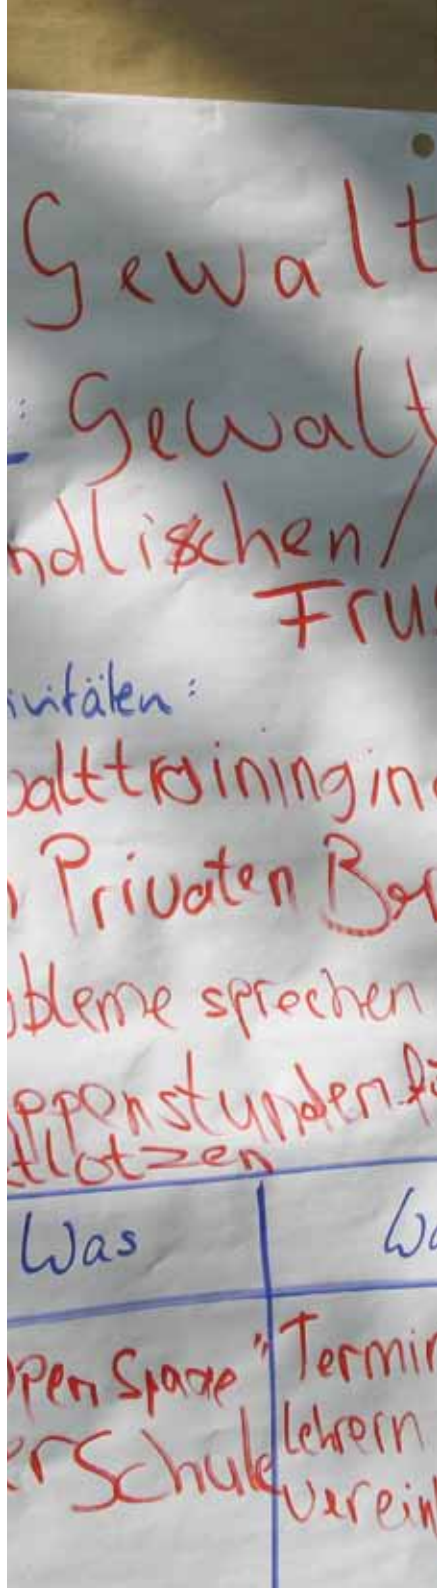 Gewalt
: Gewalt
ndlischen/
Frus
ivitäten:
walttraining in
n Privaten Ber
obleme sprechen
ppenstunden fü
tlotzen
Was Wa
open Space" Termin
er Schule lehrern
verein